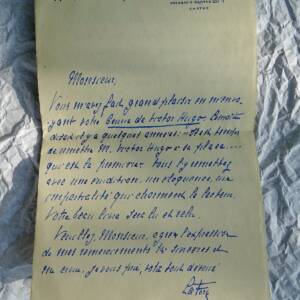 Monsieur,
Vous m'avez fait grand plaisir en m'envo-
yant votre Génie de Victor Hugo.
disait il y a quelques années:
remettre M. Victor Hugo à sa place....
qui est la première. Vous l'y remettez
avec une érudition, une éloquence, une
impartialité qui charment le lecteur.
Votre beau livre sera lu et relu.
Veuillez, Monsieur, agréer l'expression
de mes remerciements les sincères et
me croire, je vous prie, votre tout dévoué